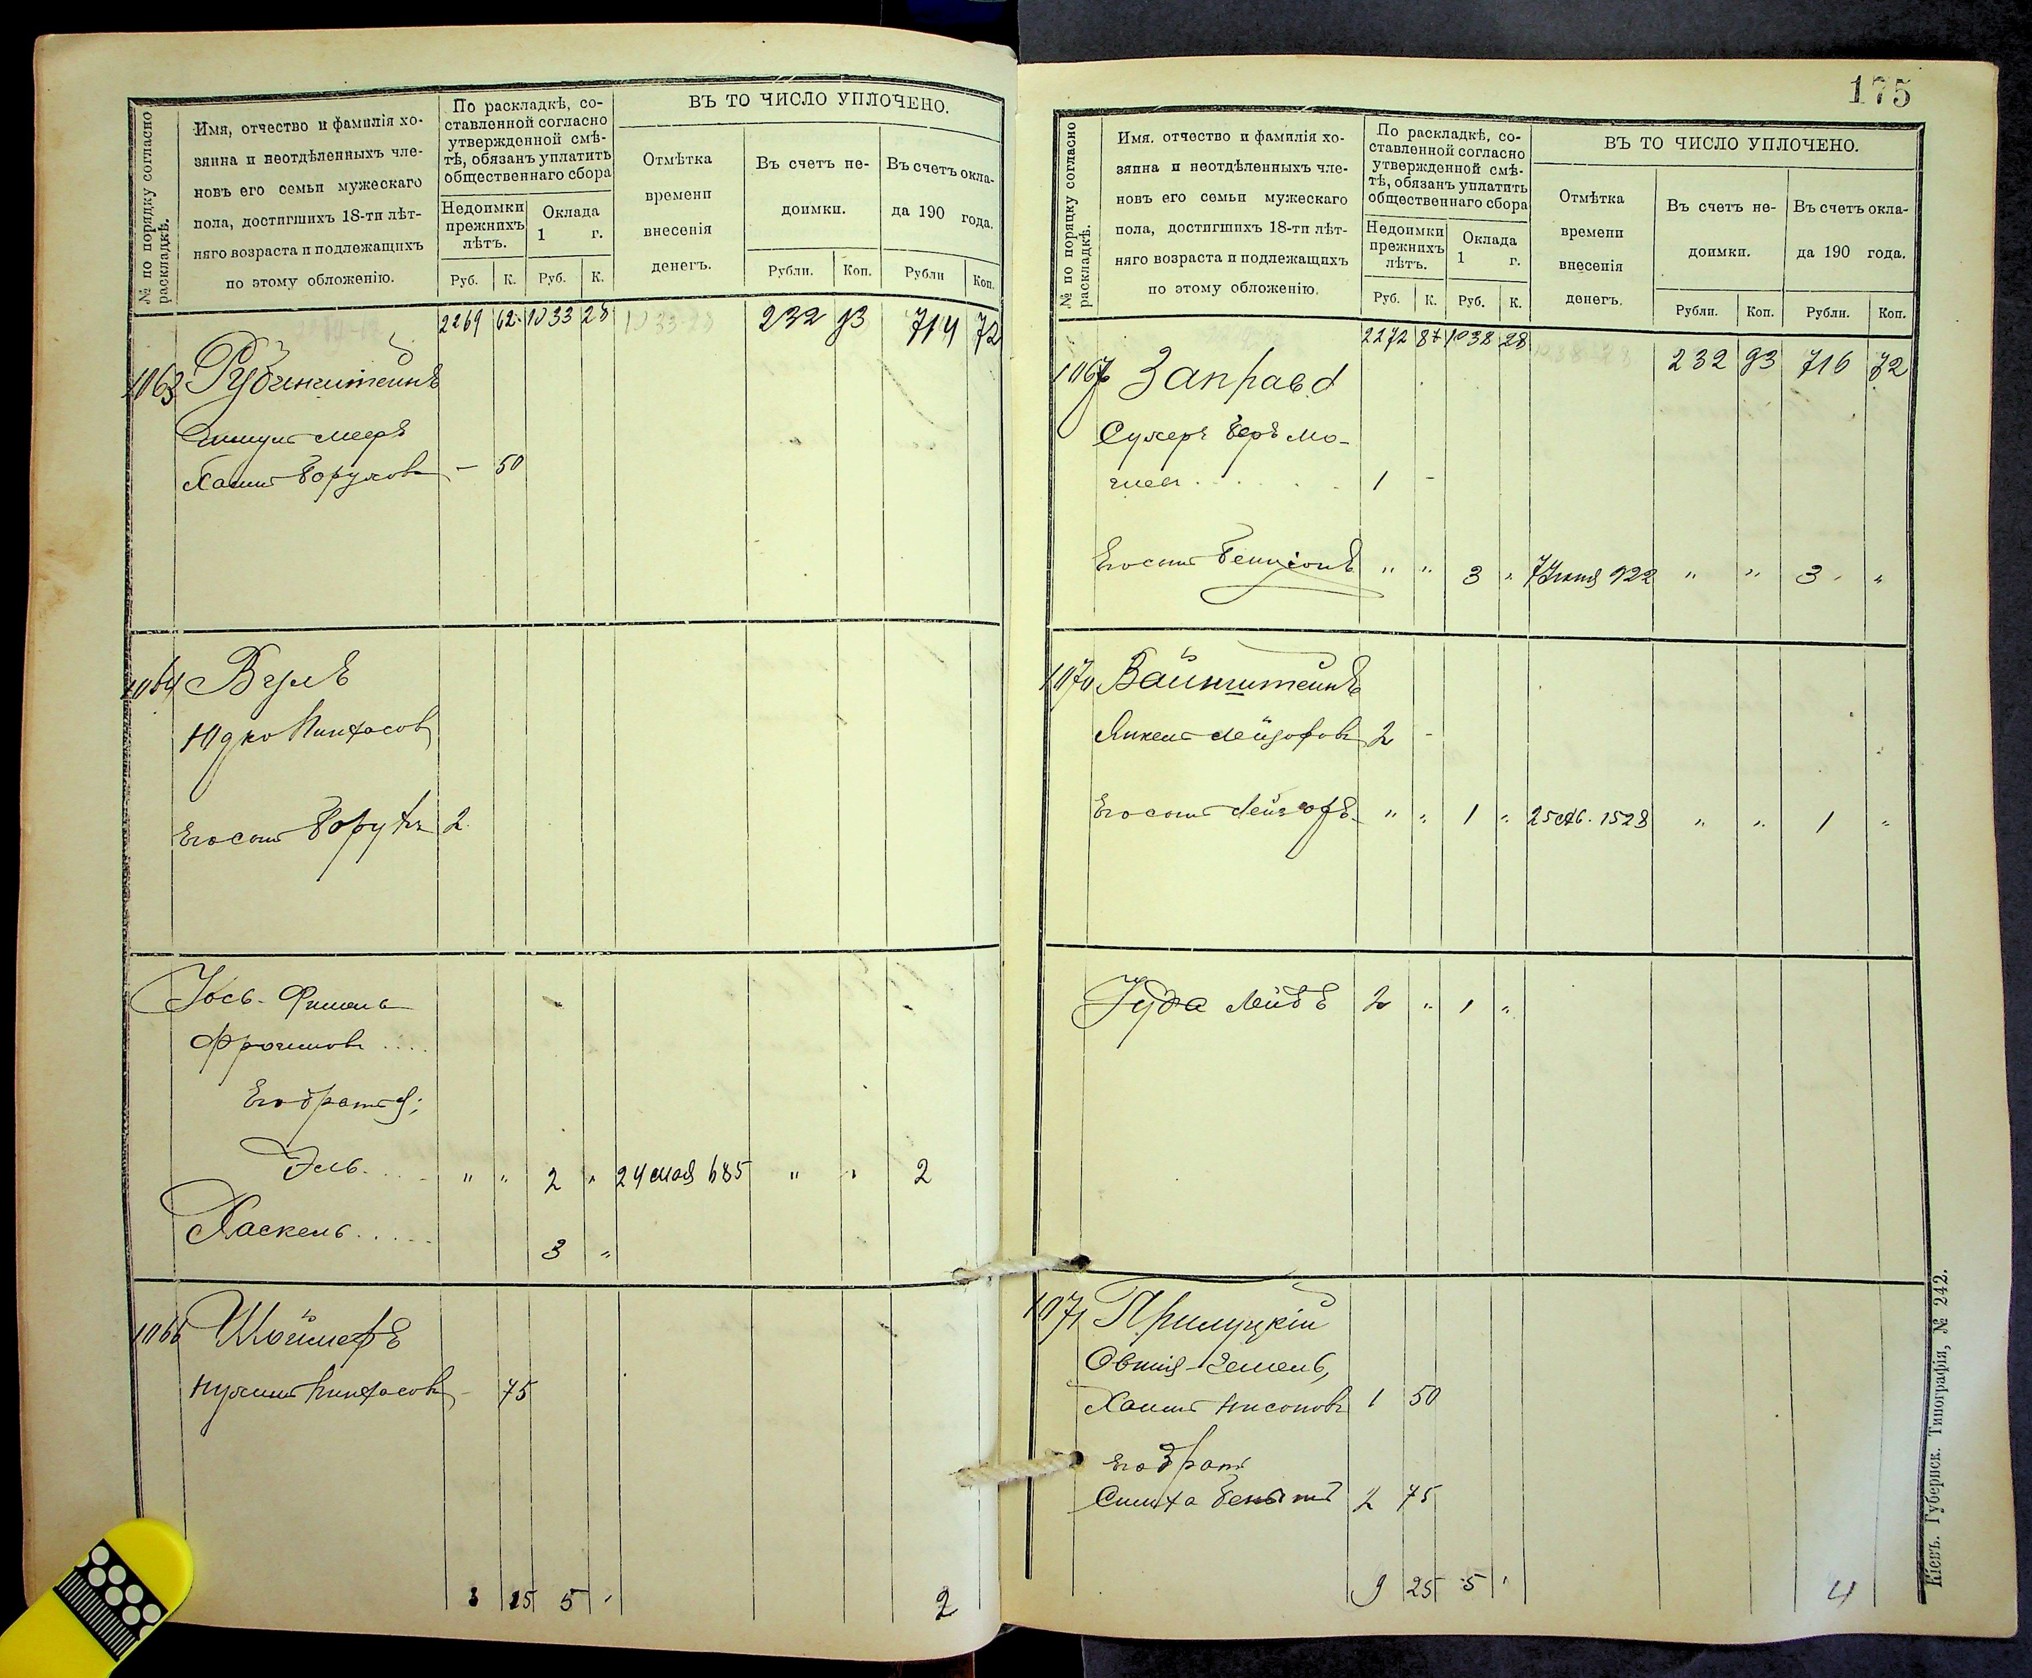 № по порядку согласно раскладкѣ.
Имя, отчество и фамилія хо-
зяина и неотдѣленныхъ чле-
новъ его семьи мужескаго
пола, достигшихъ 18-ти лѣт-
няго возраста и подлежащихъ
по этому обложенію.
По раскладкѣ, со-
ставленной согласно
утвержденной смѣ-
тѣ, обязанъ уплатить
общественнаго сбора
Недоимки прежнихъ лѣтъ.
Оклада 1 г.
Руб. К. Руб. К.
ВЪ ТО ЧИСЛО УПЛОЧЕНО.
Отмѣтка
времени
внесенія
денегъ.
Въ счетъ не-
доимки.
Рубли. Коп.
Въ счетъ окла-
да 190 года.
Рубли Коп.
2269 62 1033 28 232 93 714 72
1063 Рубинштейнъ
Мееръ
Хаимъ Борухов - 50
1064 Вулъ
Юдко Пинхасов
Его сынъ Борухъ 2
Іось-Фишель
Фроимовъ ....
Его братья;
Эль.... " " 2 " 24 мая 685 " " 2
Хаскель..... 3 "
1066 Шоймеръ
Нухимъ Пинхасовъ - 75
3 25 5 " 2
175
№ по порядку согласно раскладкѣ.
Имя, отчество и фамилія хо-
зяина и неотдѣленныхъ чле-
новъ его семьи мужескаго
пола, достигшихъ 18-ти лѣт-
няго возраста и подлежащихъ
по этому обложенію.
По раскладкѣ, со-
ставленной согласно
утвержденной смѣ-
тѣ, обязанъ уплатить
общественнаго сбора
Недоимки прежнихъ лѣтъ.
Оклада 1 г.
Руб. К. Руб. К.
ВЪ ТО ЧИСЛО УПЛОЧЕНО.
Отмѣтка
времени
внесенія
денегъ.
Въ счетъ не-
доимки.
Рубли. Коп.
Въ счетъ окла-
да 190 года.
Рубли. Коп.
2272 87 1038 28 232 93 716 72
1067 Заправа
Сухеръ Беръ Мо-
1 -
Его сынъ Бенціонъ " " 3 " 7 Іюня 922 " " 3 "
1070 Вайнштейнъ
Янкель Лейзоровъ 2 -
Его сынъ Лейзоръ " " 1 " 1528 " " 1 "
Іуда Лейбъ 2 " 1 "
1071 Прилуцкій
Овшія-Земель,
Хаимъ Нисоновъ 1 50
его братъ
Симха 2 75
9 25 5 " 4
Кіевъ. Губернск. Типографія, № 242.